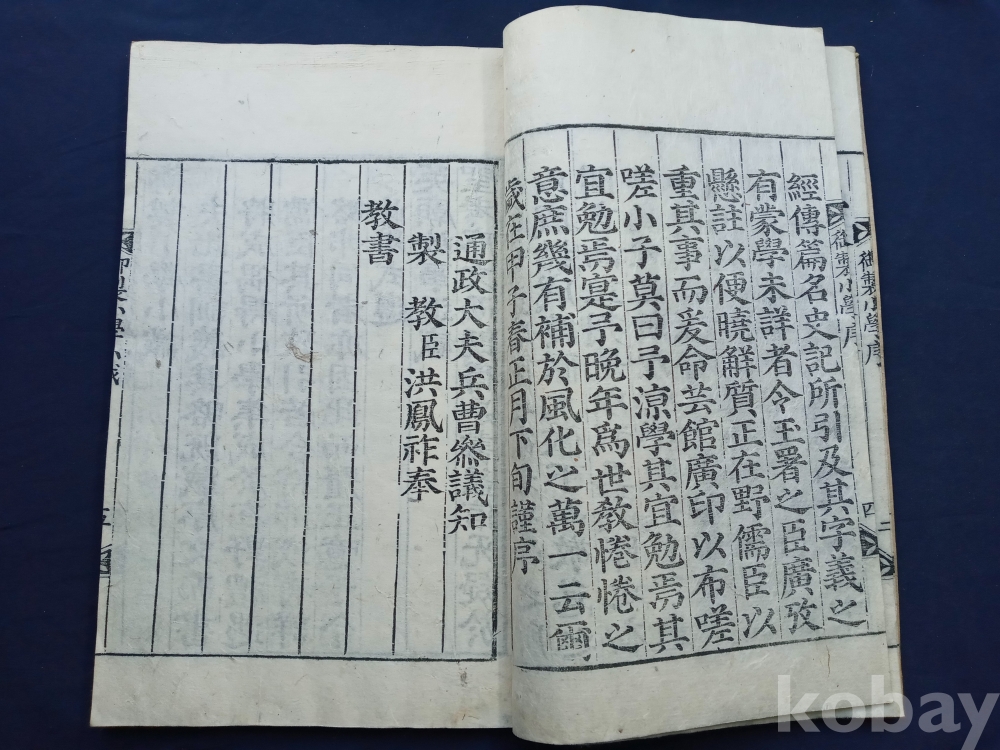 御製小學序
經傳篇名史記所引及其字義之
有蒙學未詳者令玉署之臣廣攷
懸註以便曉解質正在野儒臣以
重其事而爰命芸館廣印以布嗟
嗟小子莫曰予涼學其宜勉焉其
宜勉焉寔予晚年爲世敎惓惓之
意庶幾有補於風化之萬一云爾
歲在甲子春正月下旬謹序
通政大夫兵曹叅議知
製 教臣洪鳳祚奉
教書
kobay